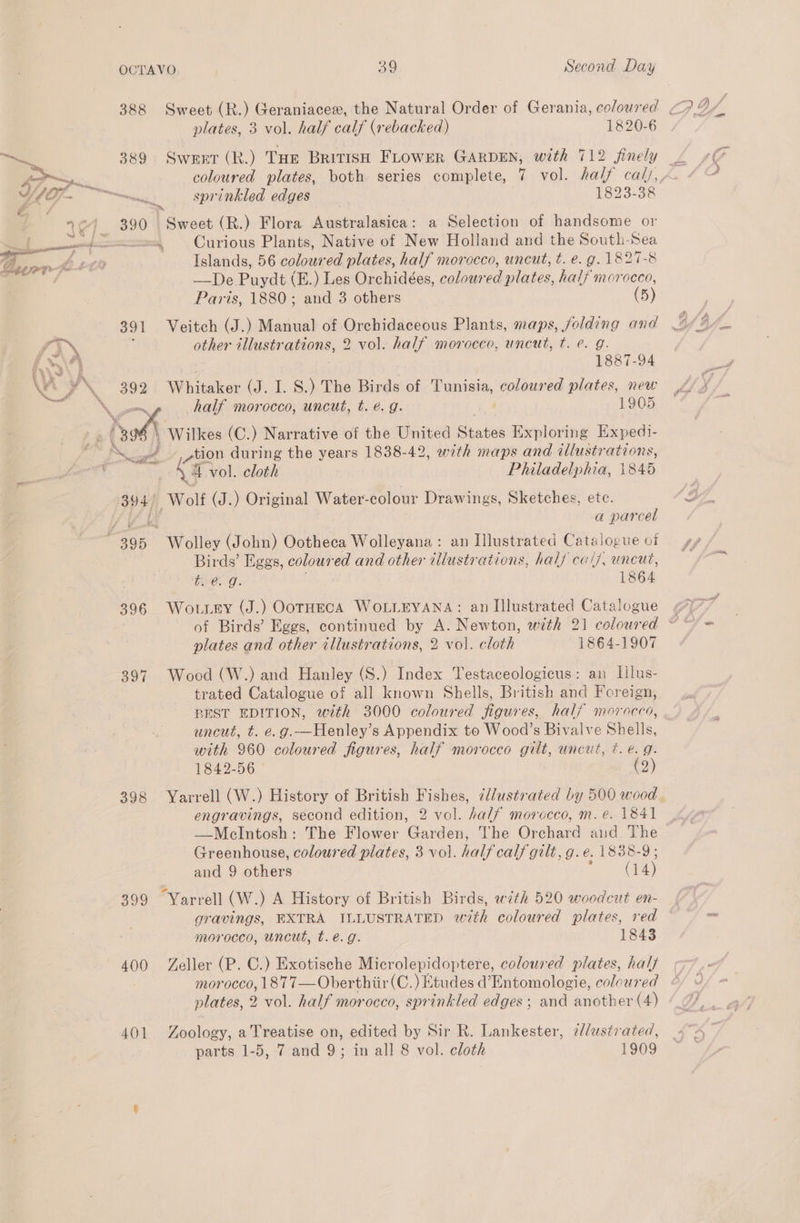 OCTAVO 39 Second Day
388 Sweet (R.) Geraniaceæ, the Natural Order of Gerania, coloured
plates, 3 vol. half calf (rebacked) 1820-6
389 SWEET (R.) THE BRITISH FLOWER GARDEN, with 712 finely
coloured plates, both series complete, 7 vol. half calf,
sprinkled edges 1823-38
390 Sweet (R.) Flora Australasica: a Selection of handsome or
Curious Plants, Native of New Holland and the South-Sea
Islands, 56 coloured plates, half morocco, uncut, t. e. g. 1827-8
—De Puydt (E.) Les Orchidées, coloured plates, half morocco,
Paris, 1880; and 3 others (5)
391 Veitch (J.) Manual of Orchidaceous Plants, maps, folding and
other illustrations, 2 vol. half morocco, uncut, t. e. g.
1887-94
392 Whitaker (J. I. S.) The Birds of Tunisia, coloured plates, new
half morocco, uncut, t. e. g. 1905
Wilkes (C.) Narrative of the United States Exploring Expedi-
tion during the years 1838-42, with maps and illustrations,
vol. cloth Philadelphia, 1845
394 Wolf (J.) Original Water-colour Drawings, Sketches, etc.
a parcel
395 Wolley (John) Ootheca Wolleyana: an Illustrated Catalogue of
Birds' Eggs, coloured and other illustrations, half calf, uncut,
t. e. g. 1864
396 WOLLEY (J.) OOTHECA WOLLEYANA: an Illustrated Catalogue
of Birds' Eggs, continued by A. Newton, with 21 coloured
plates and other illustrations, 2 vol. cloth 1864-1907
397 Wood (W.) and Hanley (S.) Index Testaceologicus: an Illus-
trated Catalogue of all known Shells, British and Foreign,
BEST EDITION, with 3000 coloured figures, half morocco,
uncut, t. e. g.—Henley's Appendix to Wood's Bivalve Shells,
with 960 coloured figures, half morocco gilt, uncut, t. e. g.
1842-56 (2)
398 Yarrell (W.) History of British Fishes, illustrated by 500 wood
engravings, second edition, 2 vol. half morocco, m. e. 1841
—McIntosh: The Flower Garden, The Orchard and The
Greenhouse, coloured plates, 3 vol. half calf gilt, g. e. 1838-9;
and 9 others (14)
399 Yarrell (W.) A History of British Birds, with 520 woodcut en-
gravings, EXTRA ILLUSTRATED with coloured plates, red
morocco, uncut, t. e. g. 1843
400 Zeller (P. C.) Exotische Microlepidoptere, coloured plates, half
morocco, 1877—Oberthür (C.) Etudes d'Entomologie, coloured
plates, 2 vol. half morocco, sprinkled edges; and another (4)
401 Zoology, a Treatise on, edited by Sir R. Lankester, illustrated,
parts 1-5, 7 and 9; in all 8 vol. cloth 1909